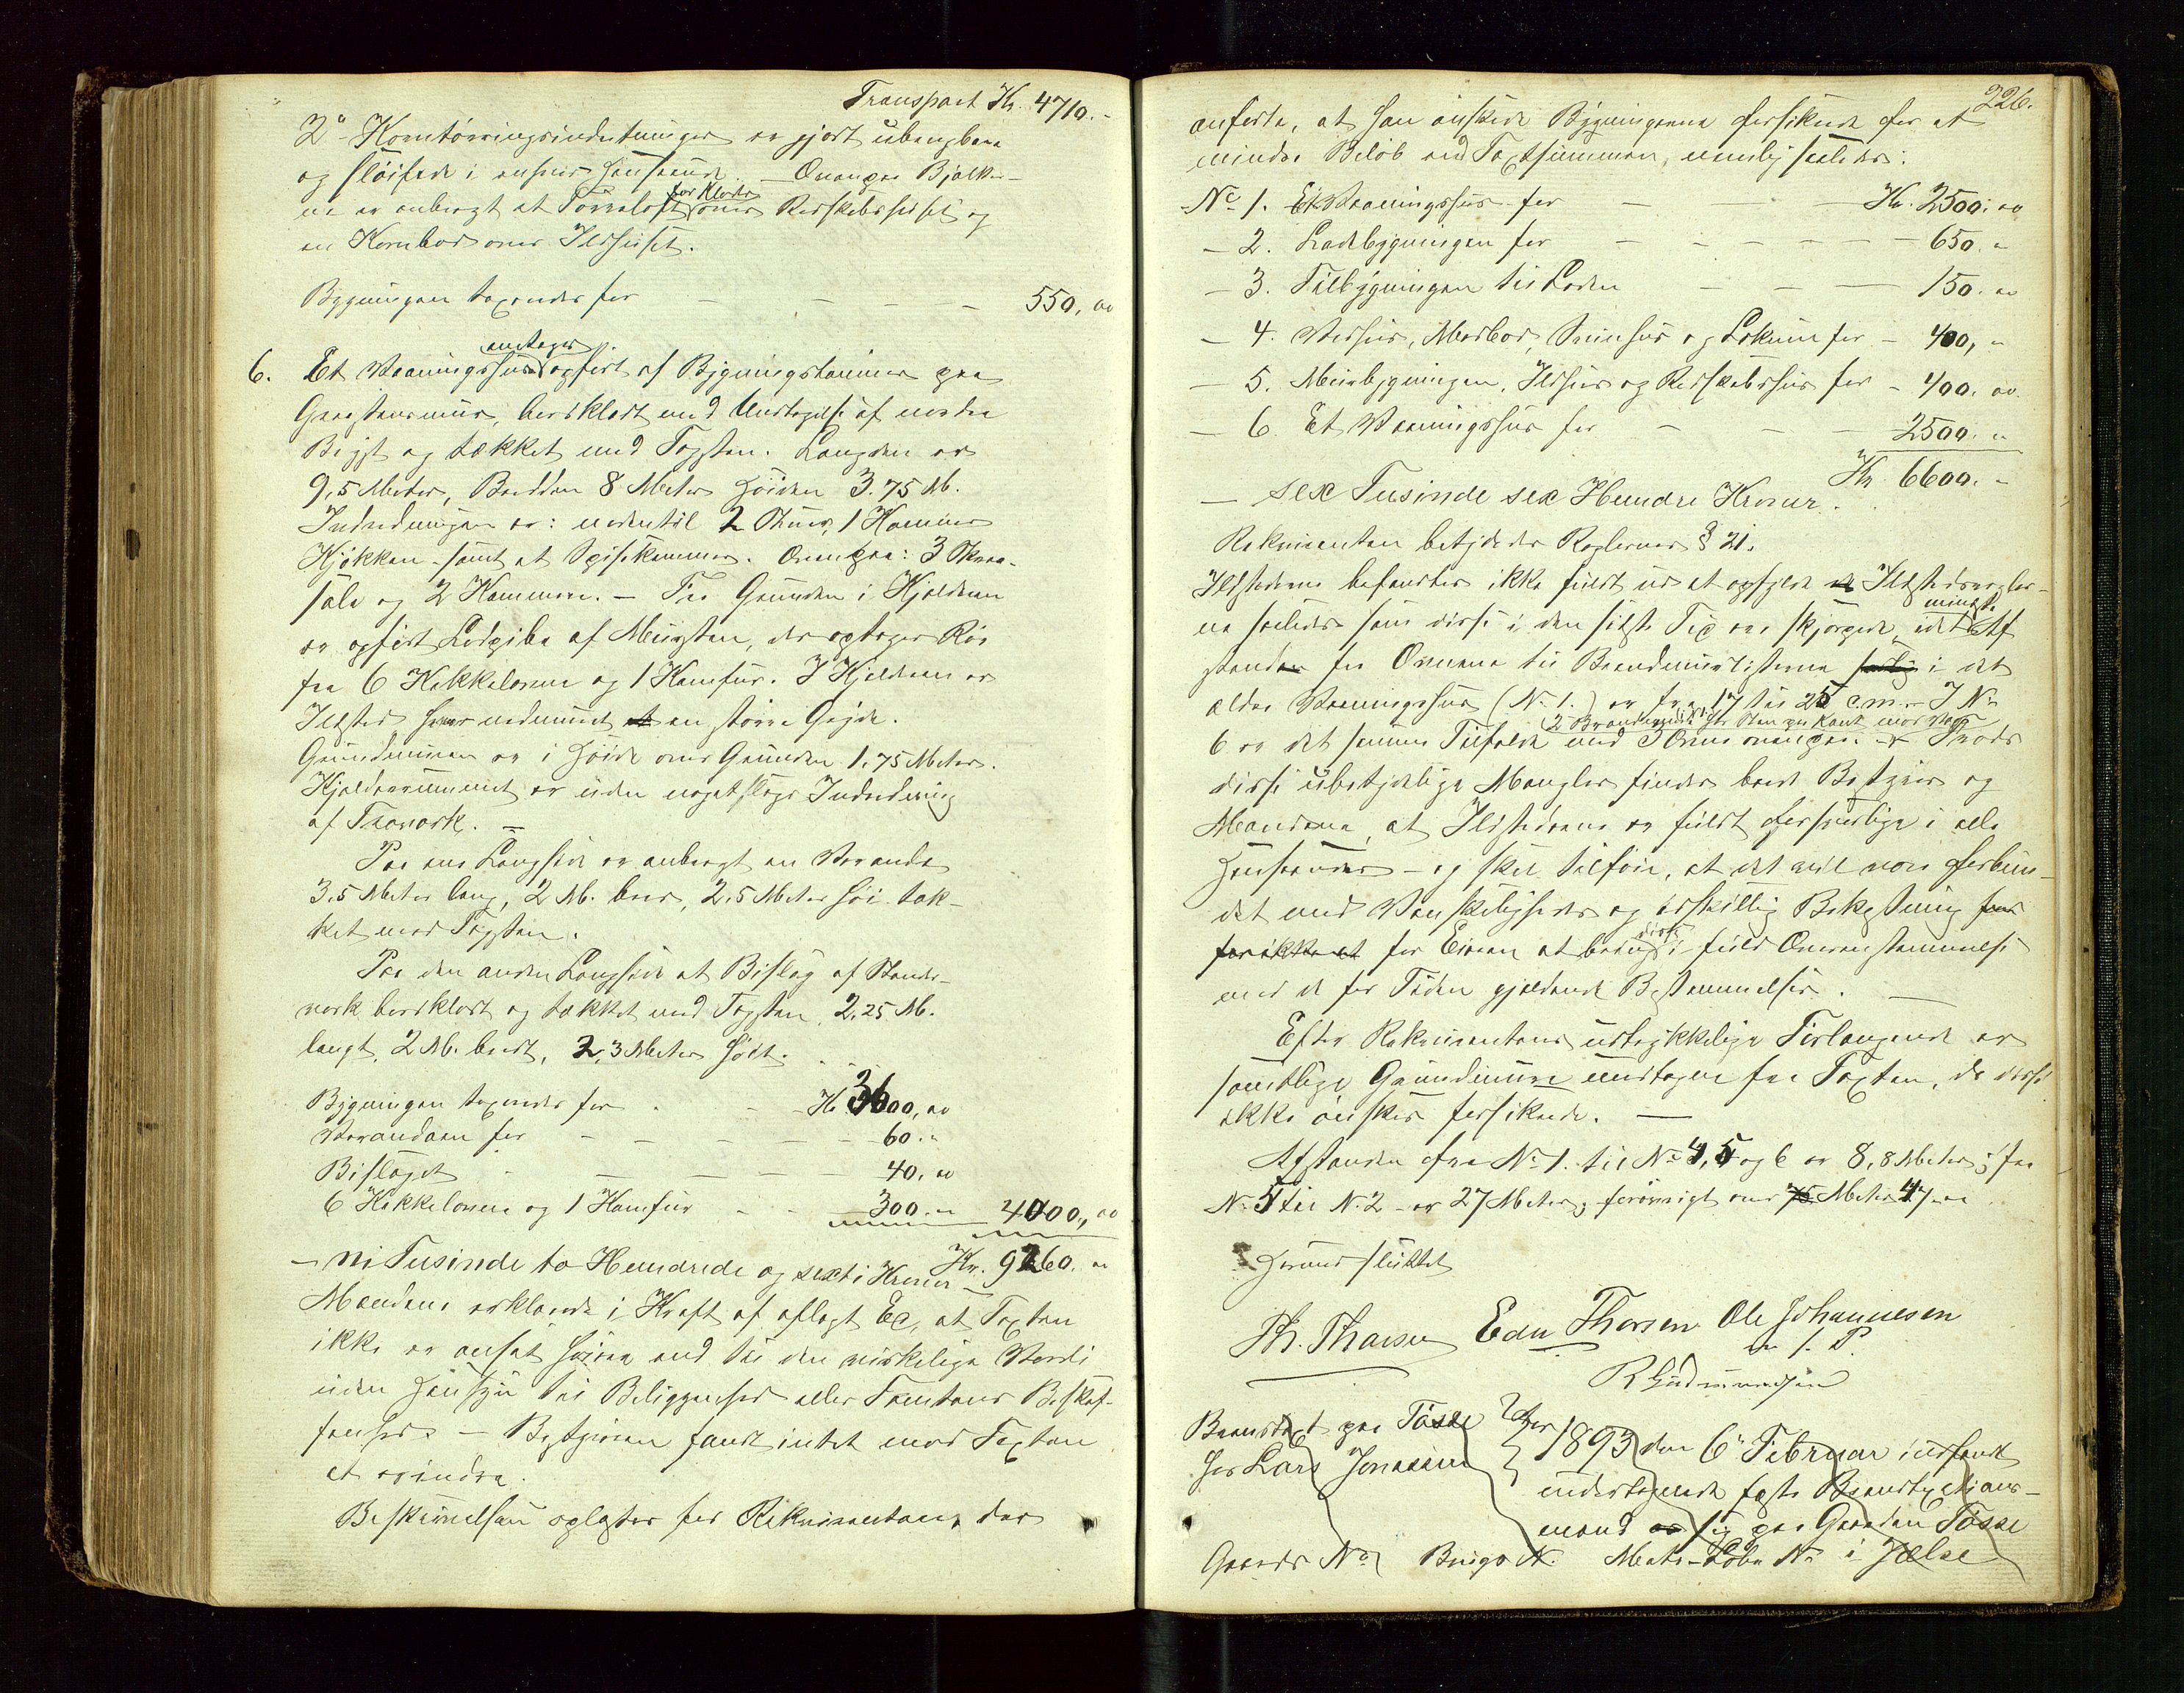 Transport Kr. 4710.-
2° Korntørringsindretninger er gjort ubrugbare
og sløifede i enhver Henseende. - Ovenpaa Bjælker-
ne er anbragt et Tørreloft for Klæder over Redskabshuset og
en Kornbod over Ildhuset.
Bygningen taxeredes for - - - - 550. "
6. Et Vaaningshus, enetages, opført af Bygningstømmer paa
Graastensmur, bordklædt med Undtagelse af nordre
og tækket med Tagsten. Længden er
9,5 Meter, Bredden 8 Meter Høiden 3.75 M.
Indredningen er: nedentil 2 Stuer, 1 Kammer
Kjøkken samt et Spisekammer. Ovenpaa: 3 Skraa-
sale og 2 Kammere. - Fra Grunden i Kjælderen
er opført Ledpibe af Mursten, der optager Rør
fra 6 Kakkelovne og 1 Komfur. I Kjælderen er
Ildsted hvor nedmuret en større Gryde.
Grundmuren er i Høide over Grunden 1.75 Meter.
Kjælderrummet er uden nogetslags Indredning
af Træværk. -
Paa ene Langside er anbragt en Veranda
3.5 Meter lang, 2 M. bred, 2.5 Meter høi tæk-
ket med Tagsten.
Paa den anden Langside et Bislag af Stender-
værk bordklædt og tækket med Tagsten, 2.25 M.
langt, 2 M. bredt, 2,3 Meter høit.
Bygningen taxeredes for - - Kr 3600, "
Verandaen for - - - - - 60. "
Bislaget - - - - 40. "
6 Kakkelovne og 1 Komfur - - 300. " 4000, "
Kr. 9260. "
- ni Tusinde to Hundrede og sexti Kroner -
Mændene erklærede i Kraft af aflagt Ed, at Taxten
ikke er ansat høiere end til den virkelige Værdi
uden Hensyn til Beliggenhed eller Tomtens Beskaf-
fenhed. - Bestyreren fandt intet mod Taxten
at erindre.
Beskrivelsen oplæstes for Rekvirenten, der
226.
anførte, at han ønskede Bygningerne forsikrede for et
mindre Beløb end Taxtsummen, nemlig saaledes:
No 1. Et Vaaningshus for - - Kr. 2500. "
- 2. Ladebygningen for - - - - - 650. "
- 3. Tilbygningen til Laden - - - 150. "
- 4. Vedhus, Madbod, Svinhus og Lokum for - 400, "
- 5. Murbygningen, Ildhus og Redskabshus for - 400. "
- 6. Et Vaaningshus for - - - 2500. "
Kr. 6600. "
- sex Tusinde sex Hundre Kroner.
Rekvirenten betydedes Reglernes § 21.
Ildstederne befandtes ikke fuldt ud at opfylde Ildstedsregler-
ne saaledes som disse i den sidste Tid ere skjærpede, idet mindste Af-
standen fra Ovnene til Brandmurlisterne i det
ældre Vaaningshus (No 1.) er fra 17 til 25 c.m. - I No
6 er det samme Tilfælde med 3 Ovne ovenpaa. - Trods
disse ubetydelige Mangler finder baade Bestyrer og
Mændene, at Ildstederne er fuldt forsvarlige i alle
Henseender - og skal tilføie, at det vil være forbun-
det med Vanskeligheder og adskillig Bekostning
for Eieren at bringe disse i fuld Overensstemmelse
med de for Tiden gjældende Bestemmelser. -
Efter Rekvirentens udtrykkelige Forlangende er
samtlige Grundmure undtagne fra Taxten, da disse
ikke ønskes forsikrede. -
Afstanden fra No 1. til No 4, 5 og 6 er 8,8 Meter; fra
No 5 til No. 2 - er 27 Meter; forøvrigt over 75 Meter
Herved sluttet
Th. Thorsen Edv Thorsen Ole Johannesen
m. p. P.
R Gudmundsen
Brandtaxt paa Tøsse
hos Lars Jonassen } Aar 1893 den 6te Februar indfandt
undertegnede faste Brandtaxtions-
mænd sig paa Gaarden Tøsse
Gaards No Brugs No. Matr-Løbe No i Jelse